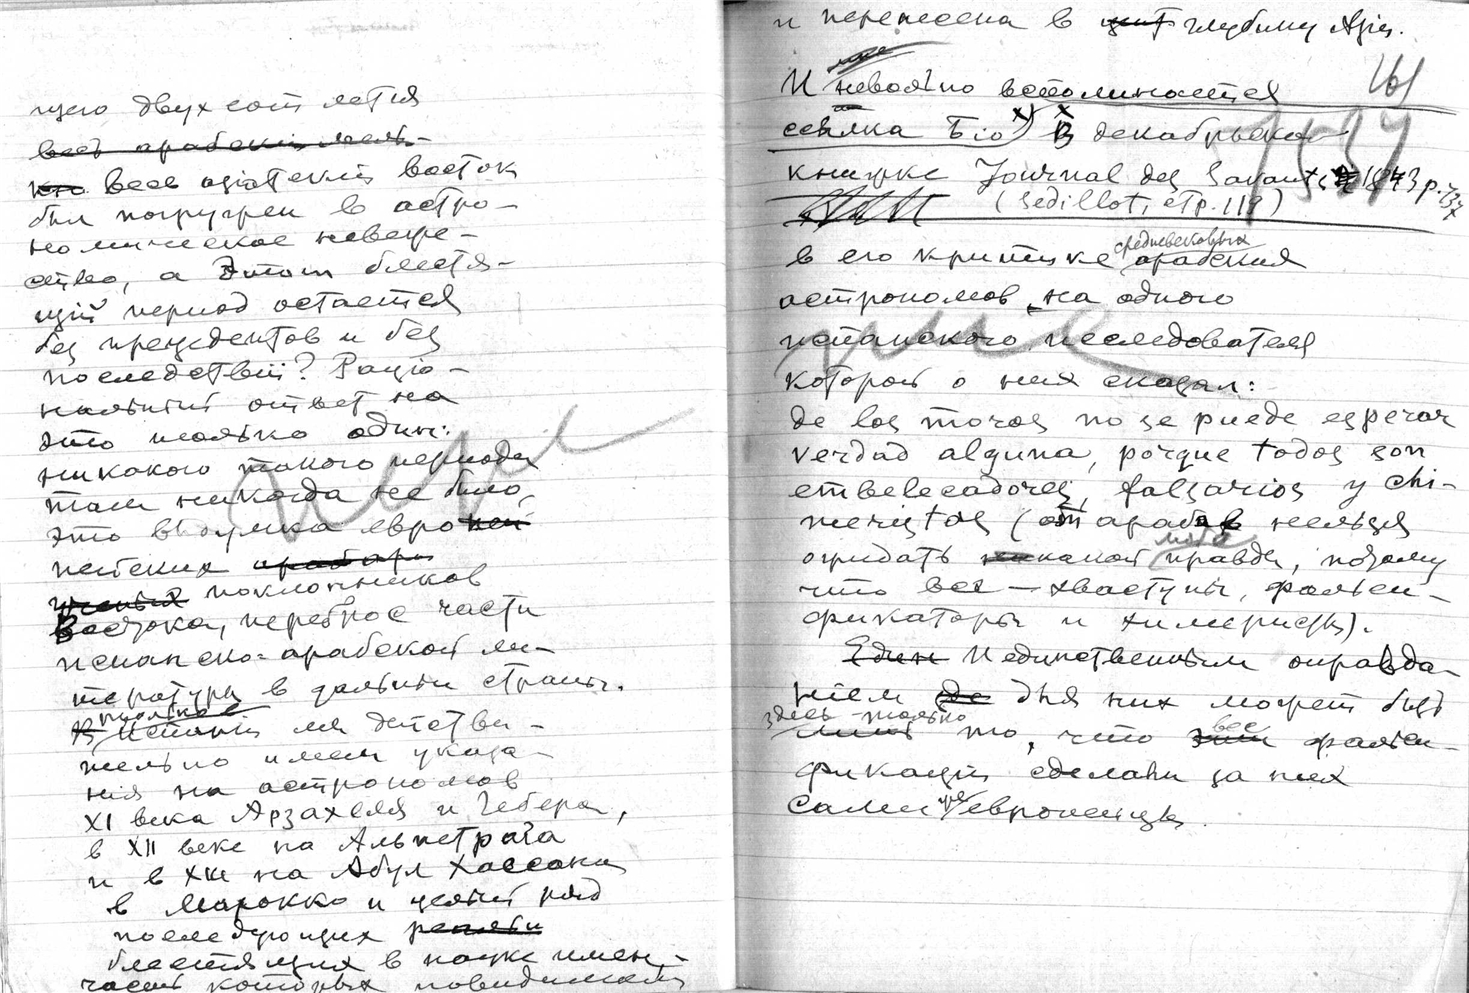 щего двухсот летия
весь арабский мель-
кто весь азіатскій восток
был погружен в астро-
номическое невеже-
ство, а Этот блестя-
щій період остается
без прецедентов и без
последствій? Раціо-
нальный ответ на
это только один:
никакого такого периода
там никогда не было,
это выдумка европей
пейских
ученых поклонников
Востока, переброс части
испанско-арабской ли-
тературы в дальния страны.
В Испаніи мы действи-
тельно имеем указа-
нія на астрономов
XI века Арзахеля и Гебера,
в XII веке на Альпетрага
и в XIII на Абул Хассана
в Марокко и целый ряд
последующих
блестящих в науке имен,
часть которых повидимому
и перенесена в цент глубину Азіи.
161
мне
И невольно вспоминается
ссылка Біо x) В x декабрьской
книжке Journal des Savants 1843 p. 737
1537
(Sedillot, стр. 119)
в его критике средневековых арабских
астрономов на одного
испанского изследователя
который о них сказал:
de los moros no se puede esperar
verdad alguna, porque todos son
embelecadores, falsarios y chi-
meristas (от арабов нельзя
ожидать никакой правды, потому
что все — хвастуны, фальси-
фикаторы и химеристы).
Един И единственным оправда-
ніем де для них может быть
здесь только
лишь то, что эти все фальси-
фикаціи сделаны за них
сами же европейцы.